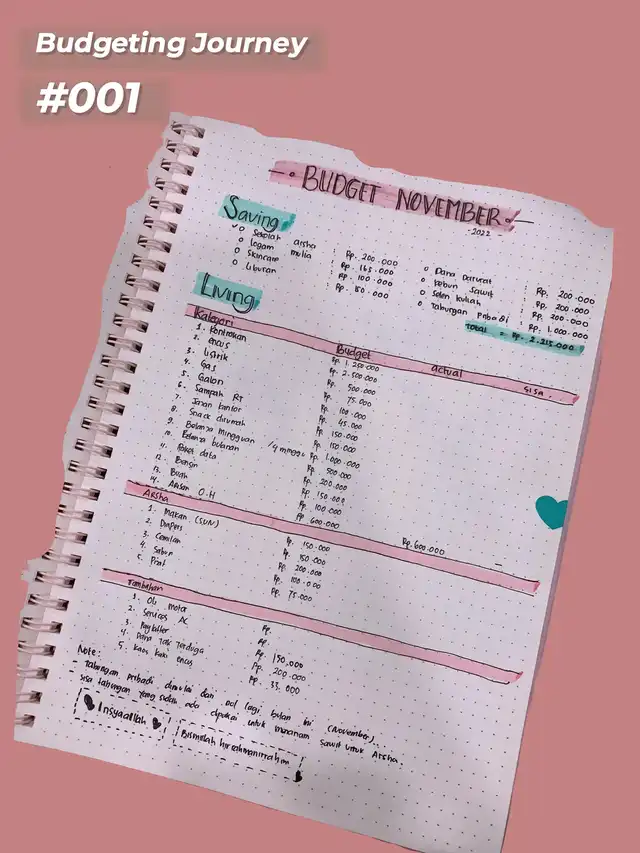 Budgeting Journey
#001
BUDGET NOVEMBER
-2022
Saving
Sekolah arsha : Rp. 200.000
Logam mulia : Rp. 165.000
Skincare : Rp. 100.000
Liburan : Rp. 150.000
Dana Darurat : Rp. 200.000
Kebun Sawit : Rp. 200.000
Selen kuliah : Rp. 200.000
Tabungan Pribadi : Rp. 1.000.000
TOTAL = Rp. 2.215.000
Living
Kategori Budget actual sisa.
1. Kontrakan Rp 1.250.000
2. encus Rp 2.500.000
3. Listrik Rp 500.000
4. Gas Rp 75.000
5. Galon Rp 100.000
6. Sampah RT Rp 45.000
7. Jajan kantor Rp 150.000
8. Snack dirumah Rp 150.000
9. Belanja mingguan /4 minggu Rp 1.000.000
10. Belanja bulanan Rp 500.000
11. Paket data Rp 200.000
12. Bensin Rp 150.000
13. Buah Rp 100.000
14. Arisan O.H Rp 600.000 Rp.600.000 –
Arsha
1. Makan (SUN) Rp. 150.000
2. Diapers Rp. 150.000
3. Cemilan Rp. 200.000
4. Sabun Rp. 100.000
5. Print Rp. 75.000
Tambahan
1. Oli motor Rp.
2. Services AC Rp.
3. Paylatter Rp. 150.000
4. Dana tak terduga Rp. 200.000
5. Kaos kaki encus Rp. 33.000
Note:
- Tabungan pribadi dimulai dari nol lagi bulan ini (November)...
sisa tabungan yang sudah ada dipakai untuk menanam sawit untuk Arsha.
Insyaallah
Bismillah hirrahmanirrahim